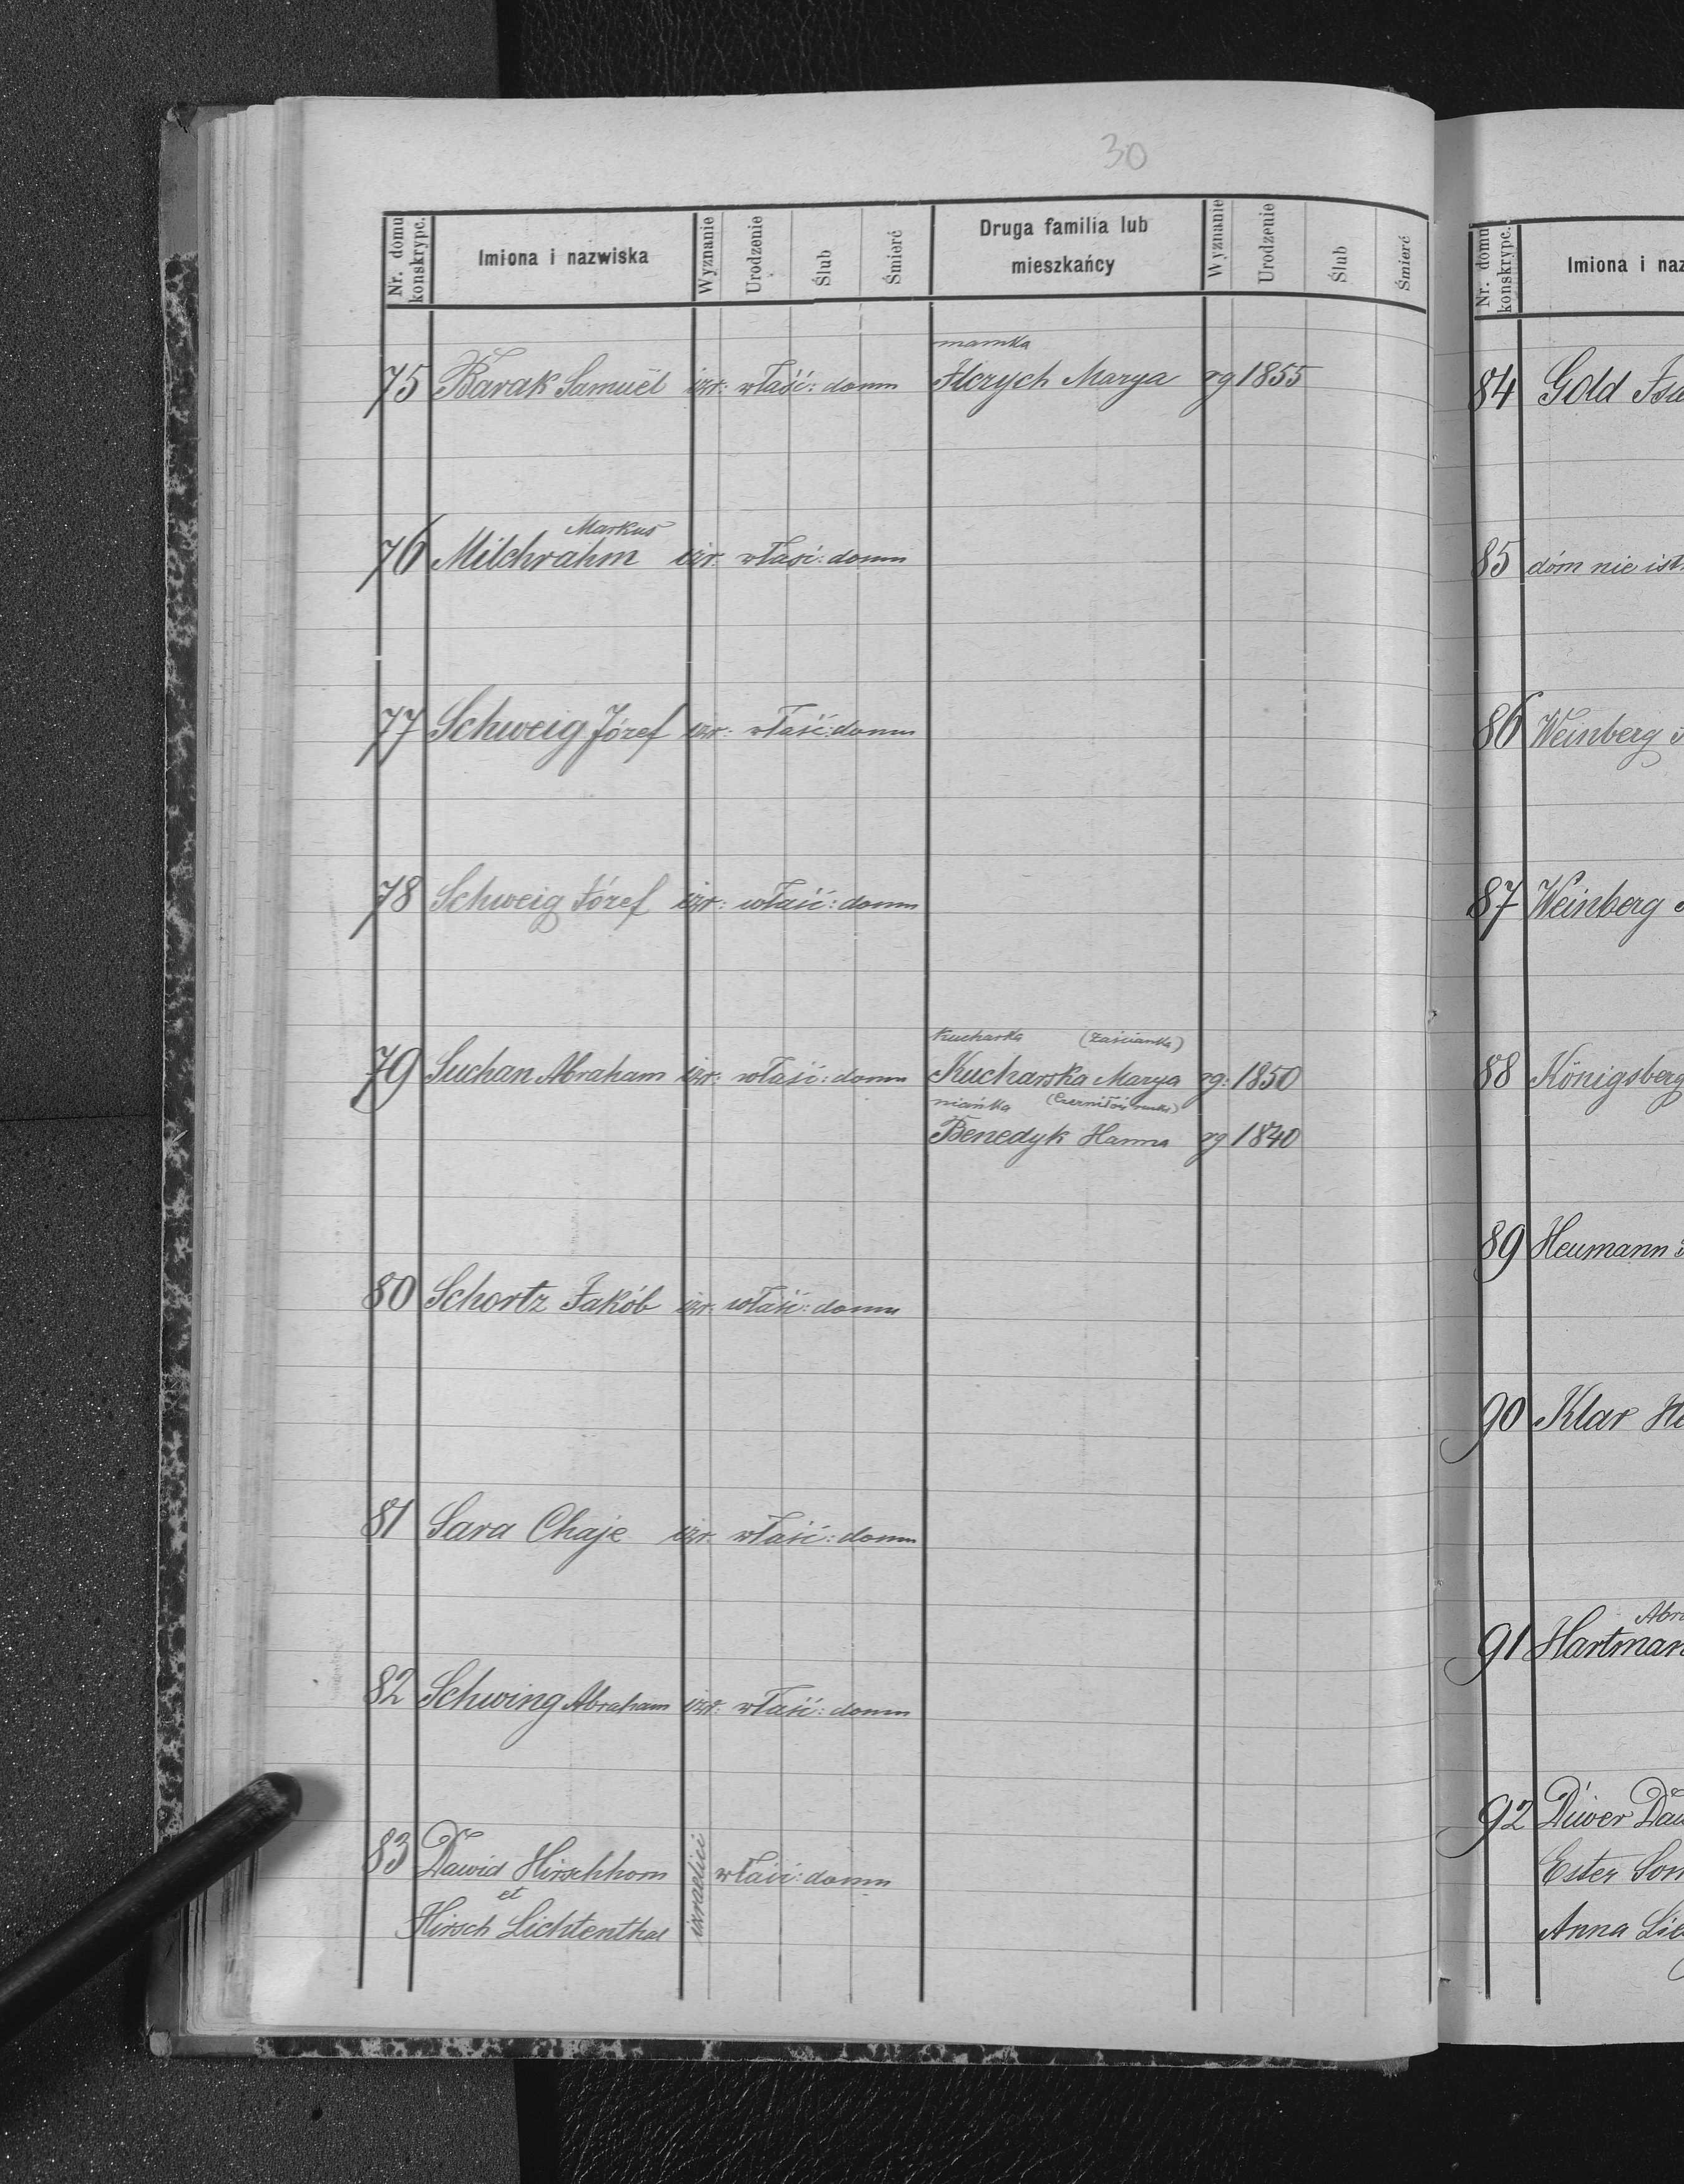 30
Nr. domu konskrypc.
Imiona i nazwiska
Wyznanie
Urodzenie
Ślub
Śmierć
Druga familia lub mieszkańcy
Wyznanie
Urodzenie
Ślub
Śmierć
mamka
75 Barak Samuel izr: właść: domu Ilczych Marya rg 1855
Markus
76 Milchrahm izr. właść: domu
77 Schweig Józef izr: właść: domu
78 Schweig Józef izr: właść: domu
kucharka (zaścianka)
79 Suchan Abraham izr: właść: domu Kucharska Marya rg: 1850
niańka
Benedyk Hanna rg 1840
80 Schortz Jakób izr: właść: domu
81 Sara Chaje izr. właść: domu
82 Schwing Abraham izr: właść: domu
83 Dawid Hirschhorn izraelici właść: domu
et
Hirsch Lichtenthal
Nr. domu konskrypc.
Imiona i naz
84 Gold Isa
85 dóm nie ist
86 Weinberg
87 Weinberg
88 Königsberg
89 Heumann
90 Klar He
Abra
91 Hartman
92 Düver Daw
Ester Son
Anna Lie